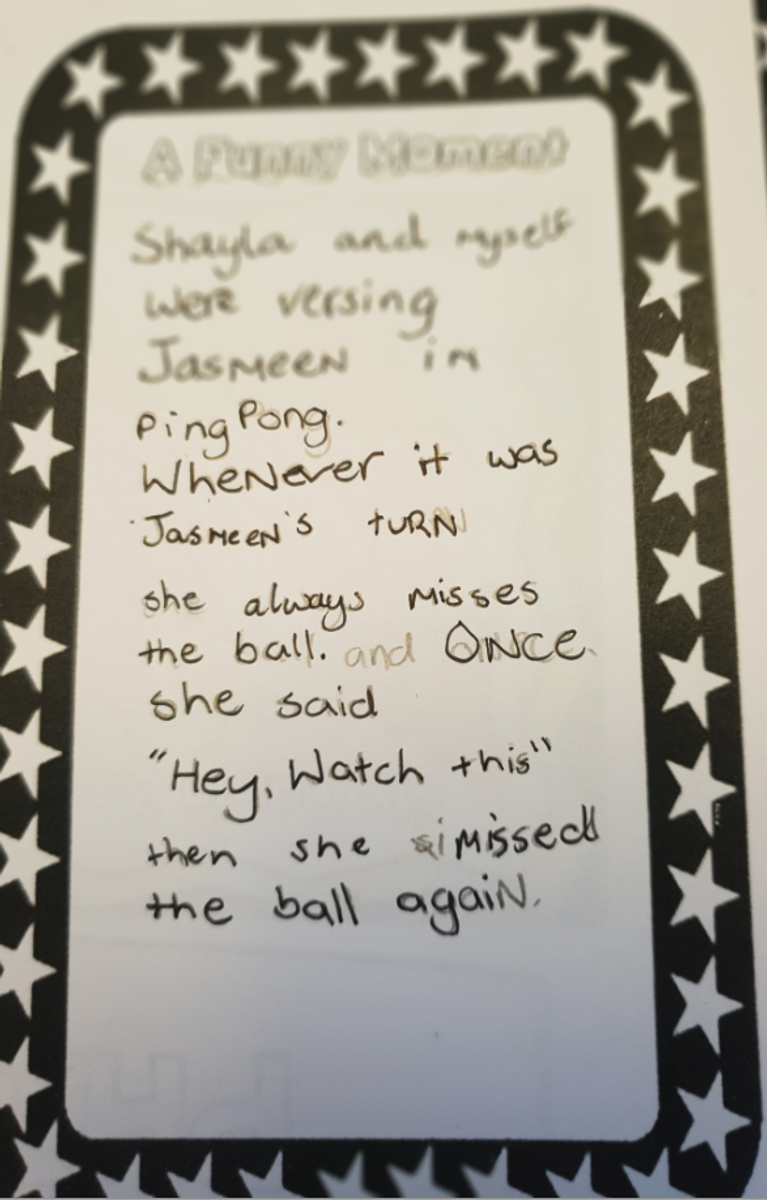 A Funny Moment
Shayla and myself
were versing
Jasmeen in
Ping Pong.
Whenever it was
Jasmeen's turn
she always misses
the ball. and Once
she said
"Hey, Watch this"
then she missed
the ball again.